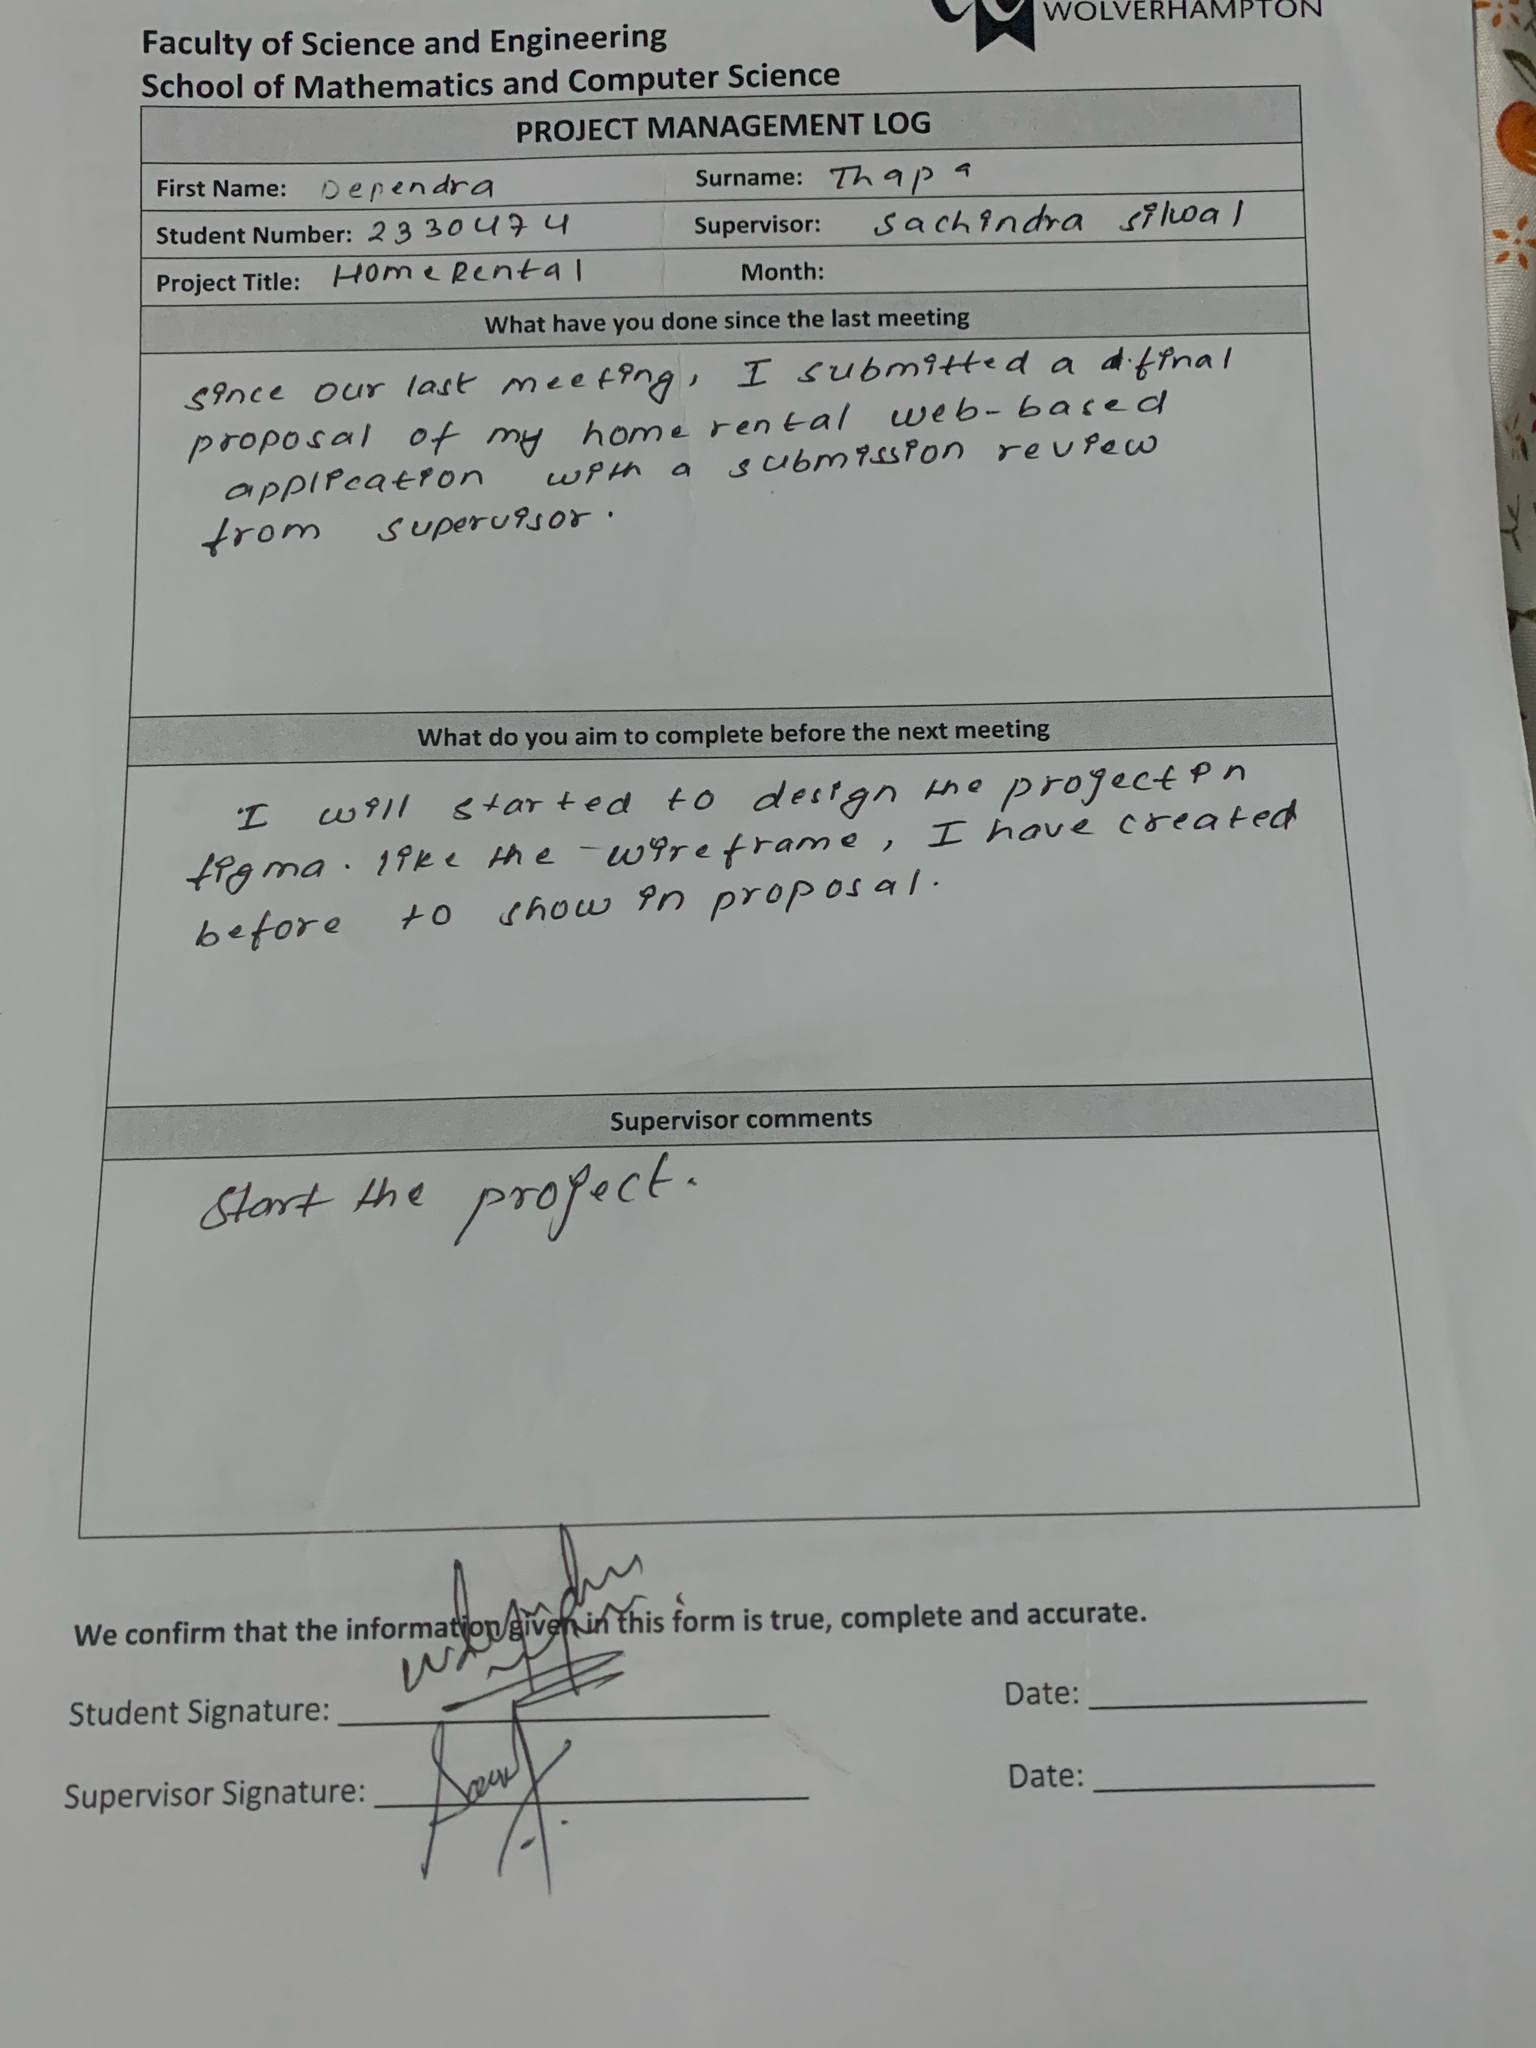 WOLVERHAMPTON
Faculty of Science and Engineering
School of Mathematics and Computer Science
PROJECT MANAGEMENT LOG
First Name: Dependra Surname: Thapa
Student Number: 2330474 Supervisor: Sachindra silwal
Project Title: Home Rental Month:
What have you done since the last meeting
since our last meeting, I submitted a final
proposal of my home rental web-based
application with a submission review
from supervisor.
What do you aim to complete before the next meeting
I will started to design the project in
figma. like the wireframe, I have created
before to show in proposal.
Supervisor comments
Start the project.
We confirm that the information given in this form is true, complete and accurate.
Student Signature: Date:
Supervisor Signature: Date: